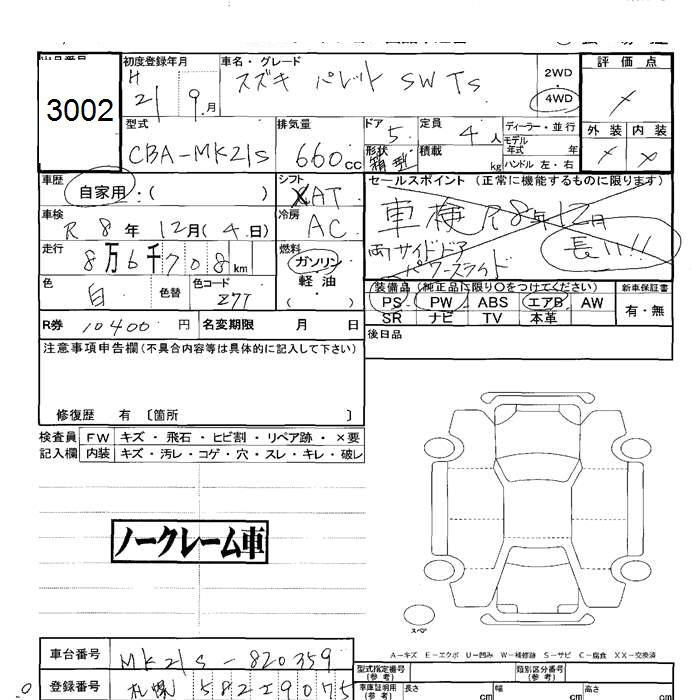 初度登録年月 車名・グレード
H 21 9月 スズキ パレット SW TS
2WD
4WD
評価点
3002
外装 内装
型式 排気量 ドア 定員 ディーラー・並行
CBA-MK21S 660cc 5 4人
モデル年式 年
形状 箱型 積載 kg ハンドル 左・右
車歴 シフト セールスポイント (正常に機能するものに限ります)
自家用・( ) AT
車検 冷房
R 8年 12月(4日) AC
車検 R8年12日
長い!!
両サイドドア
パワースライド
走行 燃料
8万6千708km ガソリン
軽油
( )
色 色替 色コード
白 Z7T
装備品 (純正品に限り○をつけてください) 新車保証書
PS PW ABS エアB AW 有・無
SR ナビ TV 本革
R券 10400円 名変期限 月 日
後日品
注意事項申告欄(不具合内容等は具体的に記入して下さい)
修復歴 有 〔箇所 〕
検査員 FW キズ・飛石・ヒビ割・リペア跡・×要
記入欄 内装 キズ・汚レ・コゲ・穴・スレ・キレ・破レ
ノークレーム車
スペア
A-キズ E-エクボ U-凹み W-補修跡 S-サビ C-腐食 XX-交換済
車台番号 MK21S-820359
型式指定番号(参考) 類別区分番号(参考)
登録番号 札幌 582 I 9075
車庫証明用(参考) 長さ cm 幅 cm 高さ cm